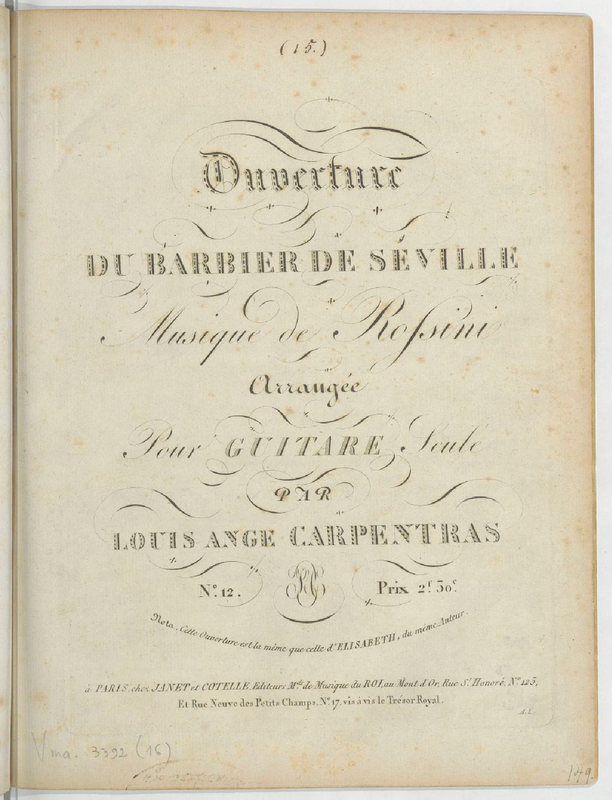 (15.)
Ouverture
DU BARBIER DE SÉVILLE
Musique de Rossini
Arrangée
Pour GUITARE Seule
PAR
LOUIS ANGE CARPENTRAS
N.º 12.
Prix 2.f 50.c
Nota. Cette Ouverture est la même que celle d'ELISABETH, du même Auteur.
à PARIS, chez JANET et COTELLE, Editeurs M.ds de Musique du ROI, au Mont d'Or, Rue S.t Honoré, N.º 125,
Et Rue Neuve des Petits Champs, N.º 17, vis à vis le Trésor Royal.
Vma. 3392 (16)
149